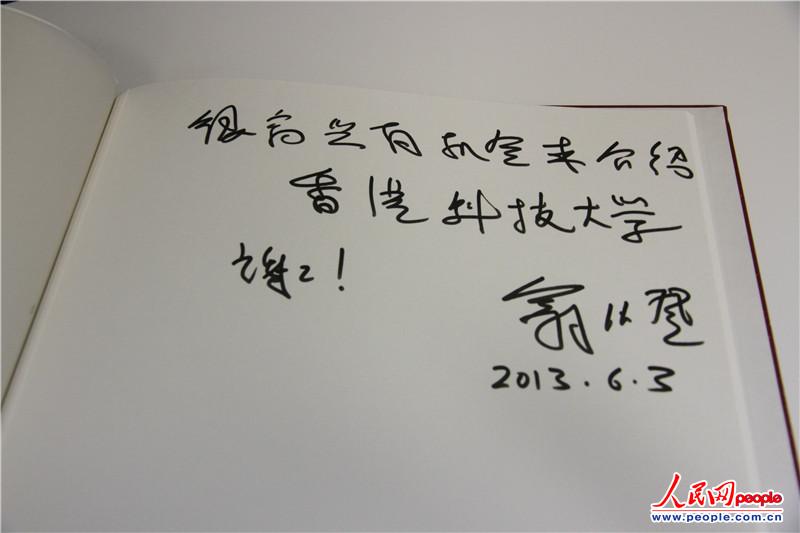 很高兴有机会来介绍
香港科技大学
谢谢！
翁以登
2013.6.3
人民网people
www.people.com.cn